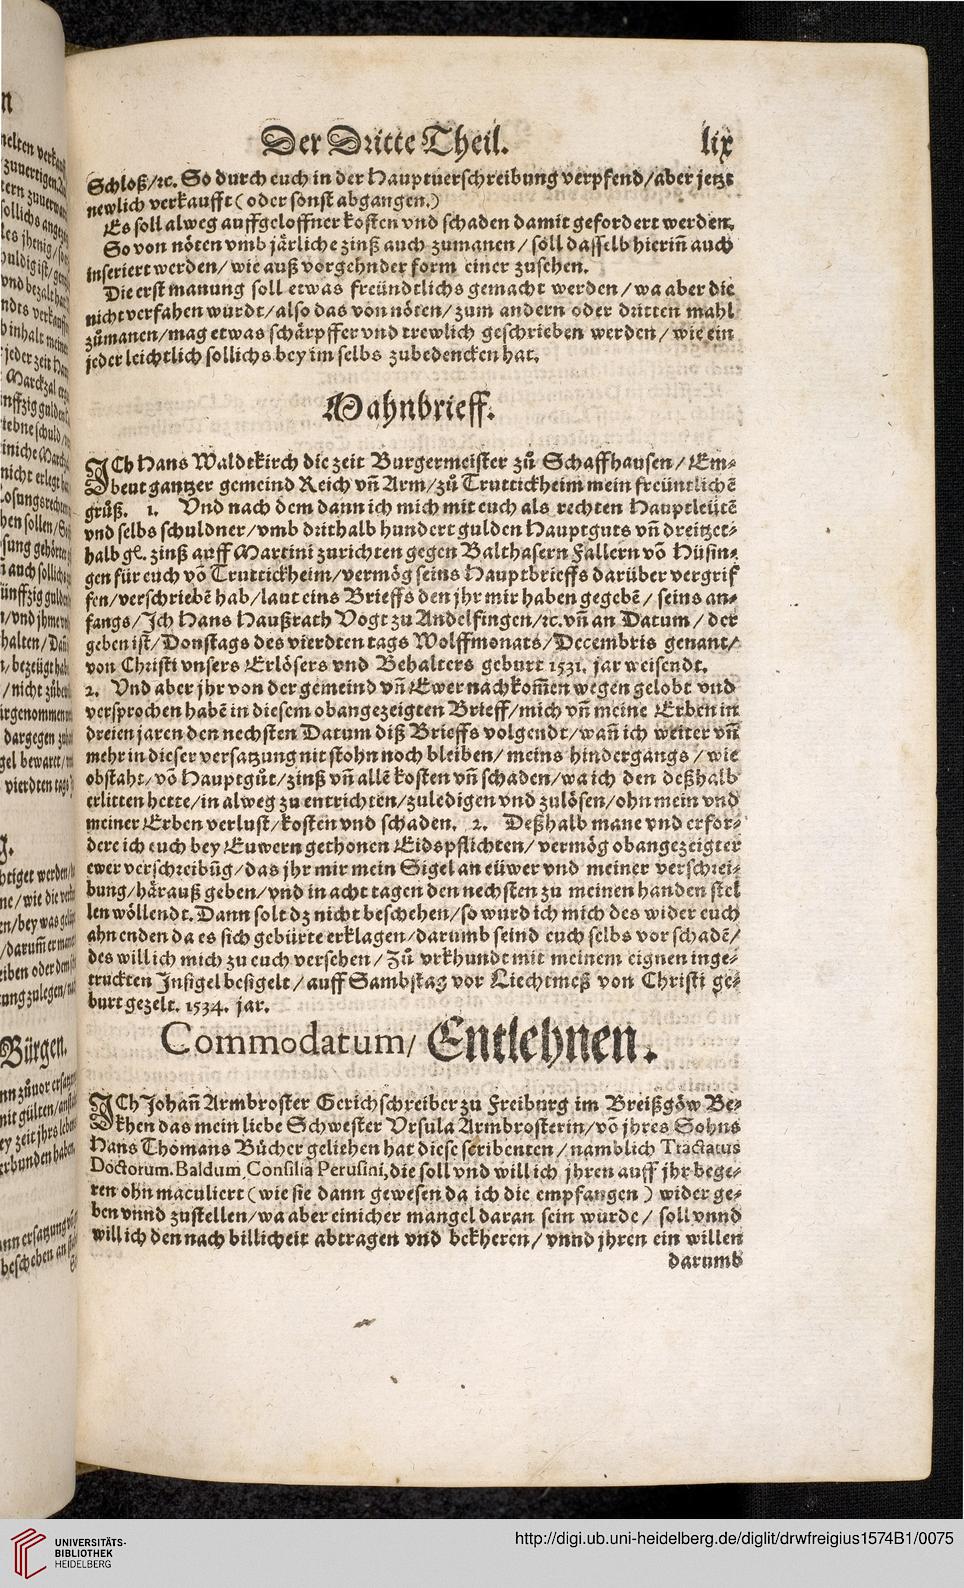 Der Dritte Theil. lix
Schloß/ꝛc. So durch euch in der Hauptuerschreibung verpfend/aber jetzt
newlich verkaufft (oder sonst abgangen.)
Es soll alweg auffgeloffner kosten vnd schaden damit gefordert werden.
So von nöten vmb järliche zinß auch zumanen/ soll dasselb hierin̄ auch
inseriert werden/ wie auß vorgehnder form einer zusehen.
Die erst manung soll etwas freündtlichs gemacht werden/wa aber die
nicht verfahen würdt/also das von nöten/zum andern oder dritten mahl
zůmanen/mag etwas schärpffer vnd trewlich geschrieben werden/ wie ein
jeder leichtlich sollichs bey im selbs zubedencken hat.
Mahnbrieff.
ICh Hans Waldtkirch die zeit Burgermeister zů Schaffhausen/ Em-
beut gantzer gemeind Reich vn̄ Arm/zů Truttickheim mein freüntlichē
grůß. 1. Vnd nach dem dann ich mich mit euch als rechten Hauptleütē
vnd selbs schuldner/vmb drithalb hundert gulden Hauptguts vn̄ dreitzet-
halb gl. zinß auff Martini zurichten gegen Balthasern Fallern vō Hüsin-
gen für euch vō Truttickheim/vermög seins Hauptbrieffs darüber vergrif
fen/verschriebē hab/laut eins Brieffs den jhr mir haben gegebē/ seins an-
fangs/Ich Hans Haußrath Vogt zu Andelfingen/ꝛc.vn̄ an Datum/ der
geben ist/Donstags des vierdten tags Wolffmonats/Decembris genant/
von Christi vnsers Erlösers vnd Behalters geburt 1531. jar weisendt.
2. Vnd aber jhr von der gemeind vn̄ Ewer nachkom̄en wegen gelobt vnd
versprochen habē in diesem obangezeigten Brieff/mich vn̄ meine Erben in
dreien jaren den nechsten Datum diß Brieffs volgendt/wan̄ ich weiter vn̄
mehr in dieser versatzung nit stohn noch bleiben/ meins hindergangs/ wie
obstaht/vō Hauptgůt/zinß vn̄ allē kosten vn̄ schaden/wa ich den deßhalb
erlitten hette/in alweg zu entrichten/zuledigen vnd zulösen/ohn mein vnd
meiner Erben verlust/kosten vnd schaden. 2. Deßhalb mane vnd erfor-
dere ich euch bey Euwern gethonen Eidspflichten/ vermög obangezeigter
ewer verschreibūg/das jhr mir mein Sigel an eüwer vnd meiner verschrei-
bung/härauß geben/vnd in acht tagen den nechsten zu meinen handen stel
len wöllendt. Dann solt dz nicht beschehen/so würd ich mich des wider euch
ahn enden da es sich gebürte erklagen/darumb seind euch selbs vor schadē/
des will ich mich zu euch versehen/ Zů vrkhundt mit meinem eignen inge-
truckten Insigel besigelt/ auff Sambstag vor Liechtmeß von Christi ge-
burt gezelt. 1534. jar.
Commodatum/ Entlehnen.
ICh Johan̄ Armbroster Gerichschreiber zu Freiburg im Breißgöw Be-
khen das mein liebe Schwester Vrsula Armbrosterin/vō jhres Sohns
Hans Thomans Bücher geliehen hat diese scribenten/namblich Tractatus
Doctorum. Baldum, Consilia Perusini,die soll vnd will ich jhren auff jhr bege-
ren ohn maculiert (wie sie dann gewesen da ich die empfangen) wider ge-
ben vnnd zustellen/wa aber einicher mangel daran sein würde/ soll vnnd
will ich den nach billicheit abtragen vnd bekheren/ vnnd jhren ein willen
darumb
UNIVERSITÄTS-
BIBLIOTHEK
HEIDELBERG
http://digi.ub.uni-heidelberg.de/diglit/drwfreigius1574B1/0075